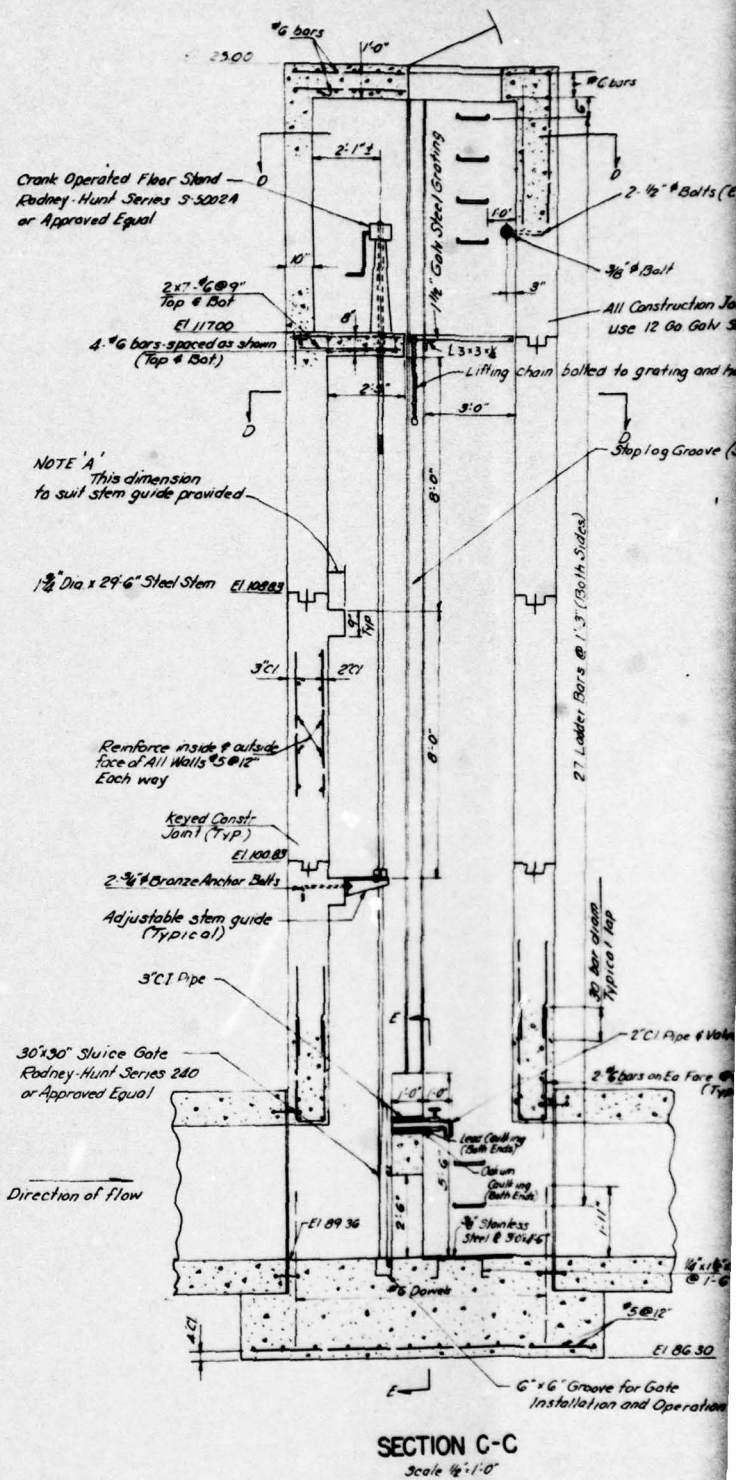 #6 bars
1'-0"
25.00
#6 bars
6"
D
D
2'-1"±
Crank Operated Floor Stand
Rodney-Hunt Series S-5002A
or Approved Equal
1½" Galv Steel Grating
1'-0"
2-½"ϕ Bolts
3/8"ϕ Bolt
10"
3"
2x7-#6@9"
Top & Bot
All Construction
use 12 Ga Galv
8"
El 117.00
4-#6 bars-spaced as shown
(Top & Bot)
L3×3×¼
Lifting chain bolted to grating and
3'-0"
D
D
Stop log Groove
NOTE 'A'
This dimension
to suit stem guide provided
8'-0"
27 Ladder Bars @ 1'-3" (Both Sides)
1¾" Dia. x 29'-6" Steel Stem
El 108.83
9"
Typ
3"Cl
2"Cl
Reinforce inside & outside
face of All Walls #5@12"
Each way
8'-0"
Keyed Constr.
Joint (Typ)
El 100.83
2-¾"ϕ Bronze Anchor Bolts
Adjustable stem guide
(Typical)
30 bar diam
Typical lap
3"C.I. Pipe
E
2"CI Pipe &
30"x30" Sluice Gate
Rodney-Hunt Series 240
or Approved Equal
2-#6 bars on Ea Face
1'-0"
1'-0"
Lead Caulking
(Both Ends)
Oakum
Caulking
(Both Ends)
5'-6"
Direction of flow
2'-6"
1'-11"
El 89.36
Stainless
Steel
#6 Dowels
@ 1'-6
#5@12"
4"Cl
El 86.30
E
6"x6" Groove for Gate
Installation and Operation
SECTION C-C
Scale ½"=1'-0"